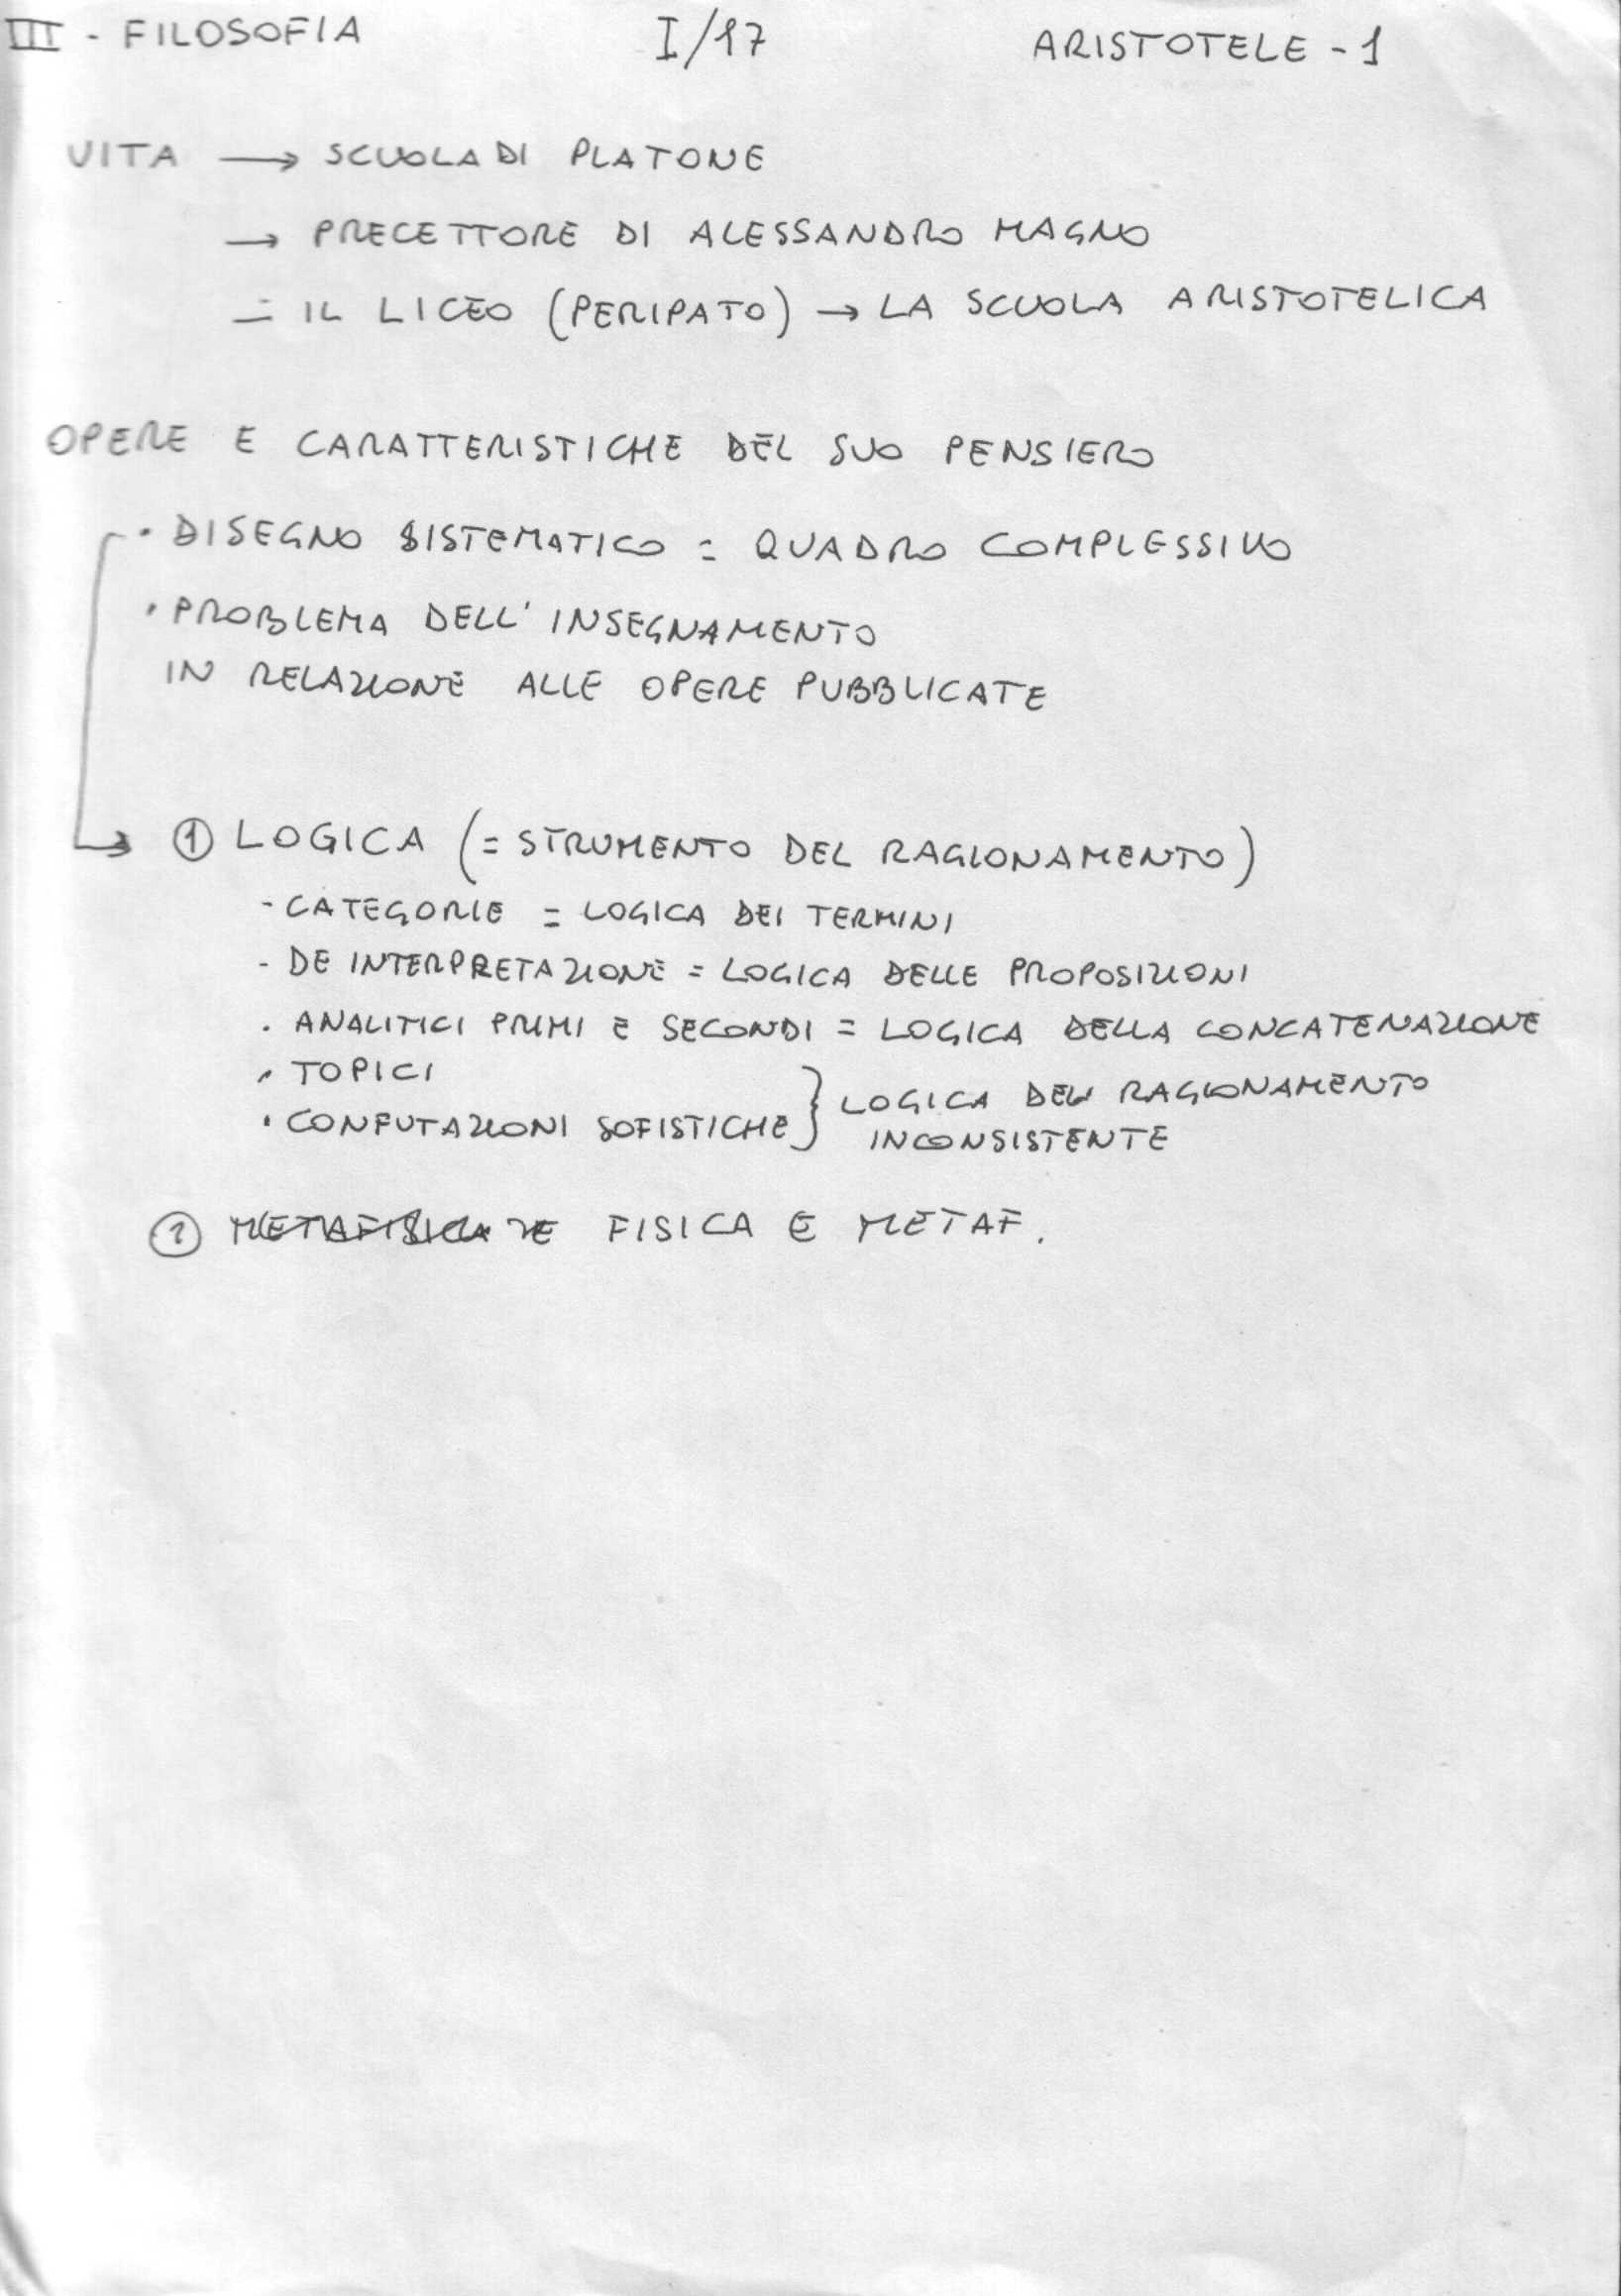 III - FILOSOFIA I/17 ARISTOTELE - 1
VITA → SCUOLA DI PLATONE
→ PRECETTORE DI ALESSANDRO MAGNO
= IL LICEO (PERIPATO) → LA SCUOLA ARISTOTELICA
OPERE E CARATTERISTICHE DEL SUO PENSIERO
· DISEGNO SISTEMATICO = QUADRO COMPLESSIVO
· PROBLEMA DELL'INSEGNAMENTO
IN RELAZIONE ALLE OPERE PUBBLICATE
→ ① LOGICA (= STRUMENTO DEL RAGIONAMENTO)
- CATEGORIE = LOGICA DEI TERMINI
- DE INTERPRETAZIONE = LOGICA DELLE PROPOSIZIONI
· ANALITICI PRIMI E SECONDI = LOGICA DELLA CONCATENAZIONE
· TOPICI
· CONFUTAZIONI SOFISTICHE } LOGICA DEL RAGIONAMENTO
INCONSISTENTE
② METAFISICA FISICA E METAF.